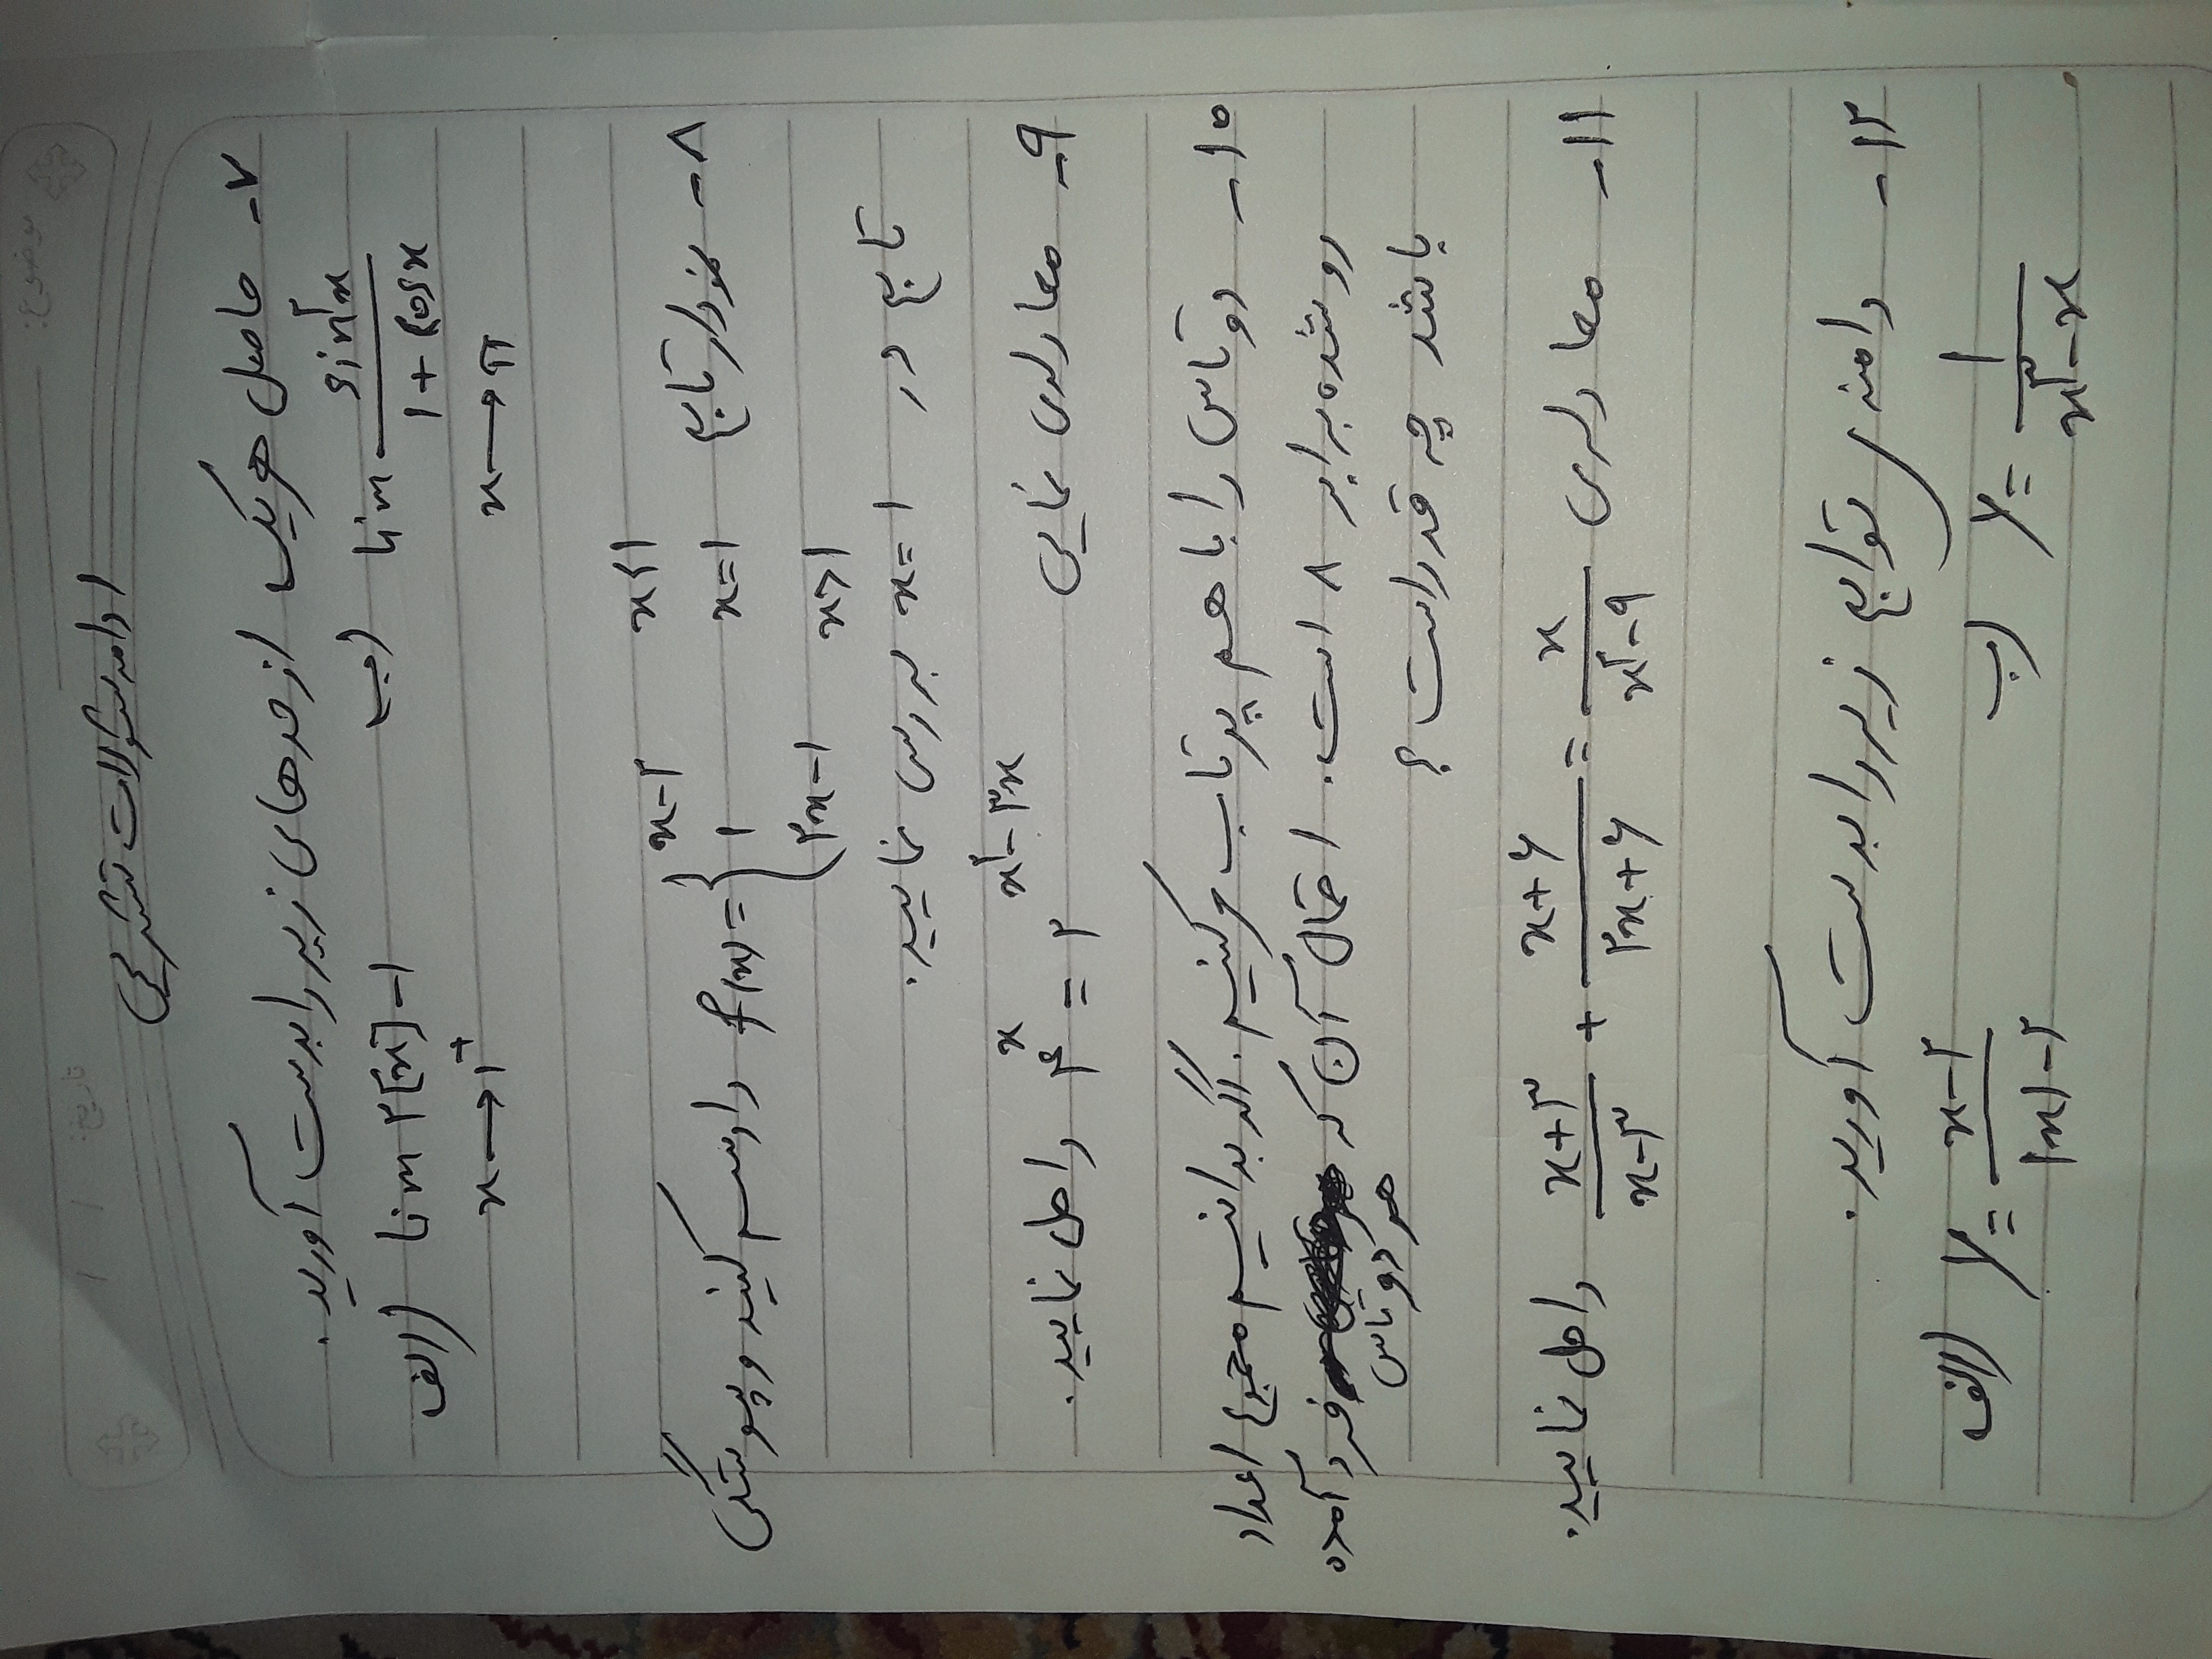 موضوع:
تاریخ: / /
ادامه سئوالات تشریحی
۷- حاصل هریک از حدهای زیر را بدست آورید.
الف) lim ۲[x]-۱ x→۱⁺ ب) lim sin²x / (۱+cosx) x→π
۸- نمودار تابع f(x)= { x-۲ x<۱ ، ۱ x=۱ ، ۲x-۱ x>۱ را رسم کنید و پیوستگی
تابع در x=۱ بررسی نمایید.
۹- معادله‌ی نمایی ۴^x = ۲^(x²-۳x) را حل نمایید.
۱۰- دو تاس را با هم پرتاب می‌کنیم. اگر بدانیم مجموع اعداد
رو شده برابر ۸ است. احتمال آن که هر دو تاس فرد آمده
باشد چه قدر است؟
۱۱- معادله‌ی (x+۳)/(x-۳) + (x+۶)/(۲x+۶) = x/(x²-۹) را حل نمایید.
۱۲- دامنه‌ی توابع زیر را بدست آورید.
الف) y = (x-۲)/(|x|-۲) ب) y = ۱/(x³-x)